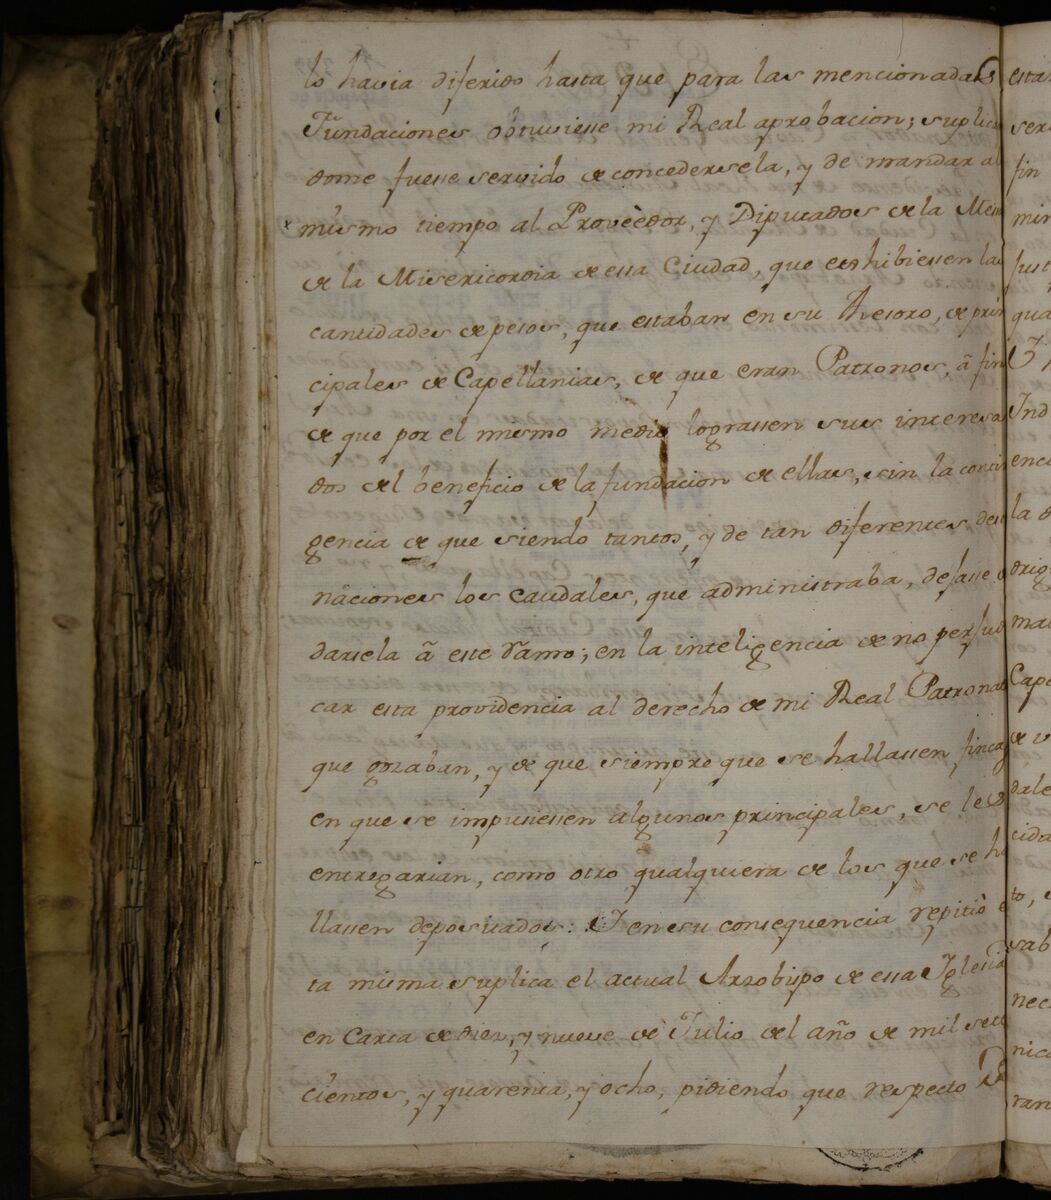 lo havia diferido hasta que para las mencionadas
Fundaciones obtuviesse mi Real aprobacion; suplican
dome fuesse servido de concedersela, y de mandar al
mismo tiempo al Proveèdor, y Diputados de la Mesa
de la Misericordia de essa Ciudad, que exhibiessen las
cantidades de pesos, que estaban en su Thesoro, de prin
cipales de Capellanias, de que eran Patronos, â fin
de que por el mismo medio lograssen sus interesa
dos del beneficio de la fundacion de ellas, sin la contin
gencia de que siendo tantos, y de tan diferentes desti
naciones los caudales, que administraba, dejasse
darsela â este ramo; en la inteligencia de no perjudi
car esta providencia al derecho de mi Real Patronat
que gozaban, y de que siempre que se hallassen fincas
en que se impusiessen algunos principales, se les
entregarian, como otro qualquiera de los que se ha
llassen depositados: Y en su consequencia repitiò es
ta misma suplica el actual Arzobispo de essa Iglesia
en Carta de diez, y nueve de Julio del año de mil sete
cientos, y quarenta, y ocho, pidiendo que respecto de
esta
ser
fin
min
Just
qua
Ind
enci
la d
orig
mac
Cape
de v
dale
cida
to,
sab
nec
nic
ran